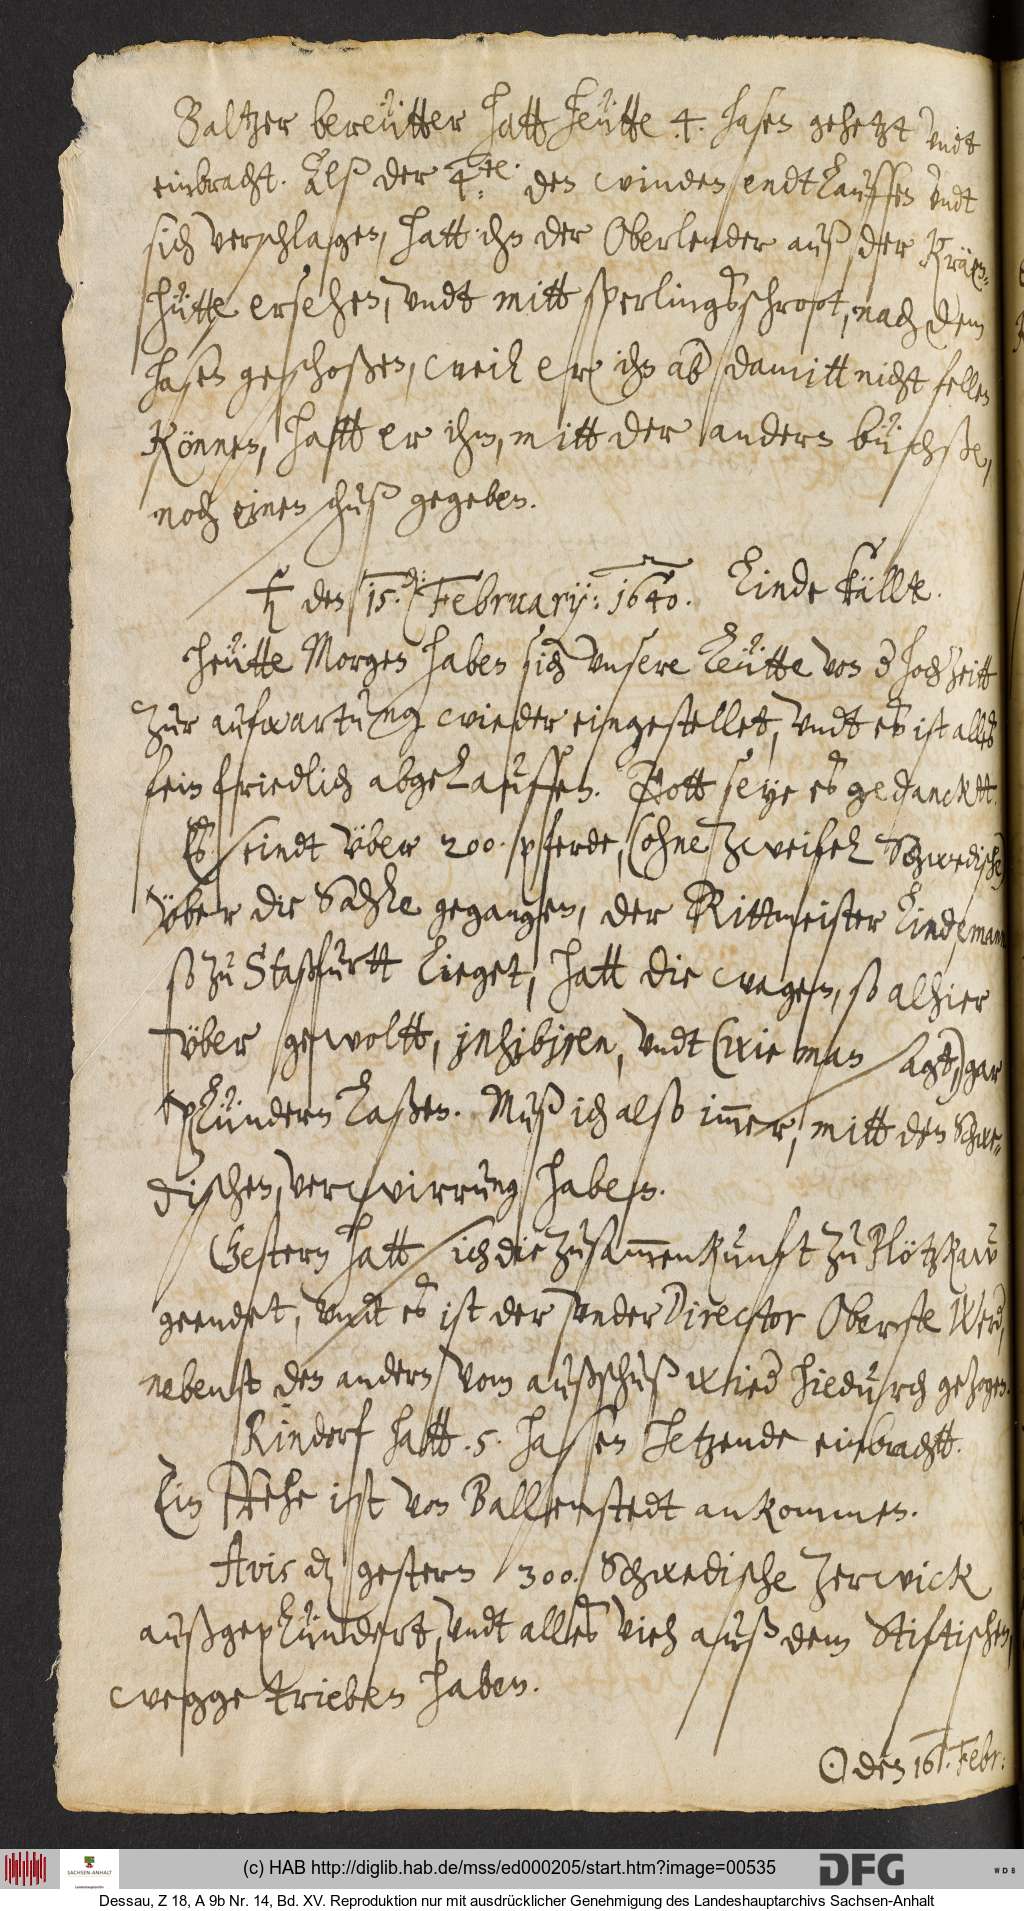 Baltzer bereütter hatt heütte 4. hasen gehetzt vndt
einbracht. Alß der 4.te: den winden endtlauffen vndt
sich verschlagen, hatt ihn der Oberlender auß der Kräen-
hütte ersehen, vndt mitt sperlingsschroot, nach dem
hasen geschoßen, weil er ihn ab damitt nicht fellen
können, hatt er ihm, mitt der andern büchße,
noch einen schuß gegeben.
♄ den 15. Februarij: 1640. Linde källte.
Heütte Morgen haben sich vnsere leütte von d hochzeitt
zur aufwartung wieder eingestellet, vndt es ist alles
fein friedlich abgelauffen. Gott seye es gedanckt.
Es seindt vber 200. pferde, (ohne zweifel Schwedische)
vber die Sahle gegangen, der Rittmeister Lindemann
so zu Staßfurtt lieget, hatt die wagen, so alhier
vber gewoltt, inhibiren, vndt (wie man sagt,) gar
plündern laßen. Muß ich also im̅er, mitt den Schwe-
dischen, verwirrung haben.
Gestern hatt sich die zusam̅enkunft zu Plötzkaw
geendet, vndt es ist der vnder Director Oberste Werd,
nebenst den andern vom außschuß wied hiedurch gezogen.
Rindorf hatt .5. hasen hetzende einbracht.
Ein Rehe ist von Ballenstedt ankommen.
Avis dz gestern 300. Schwedische Zerwick
außgeplündert, vndt alles vieh auß dem Stiftischen,
weggetrieben haben.
☉ den 16. Febr:
(c) HAB http://diglib.hab.de/mss/ed000205/start.htm?image=00535
SACHSEN-ANHALT
DFG
WDB
Dessau, Z 18, A 9b Nr. 14, Bd. XV. Reproduktion nur mit ausdrücklicher Genehmigung des Landeshauptarchivs Sachsen-Anhalt